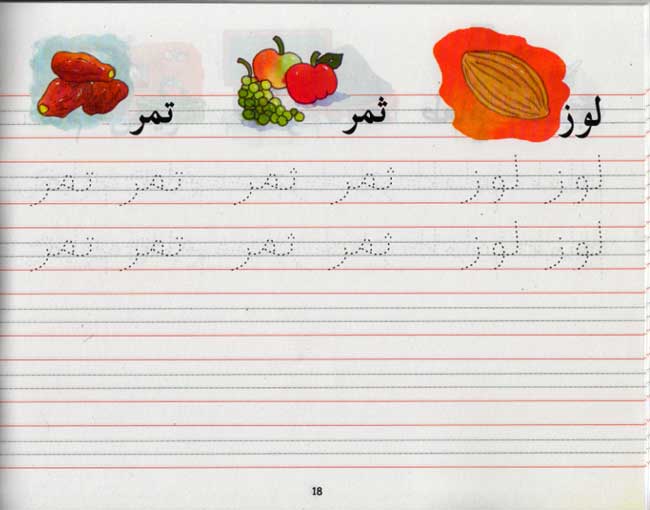 لوز ثمر تمر
لوز لوز ثمر ثمر تمر تمر
لوز لوز ثمر ثمر تمر تمر
18